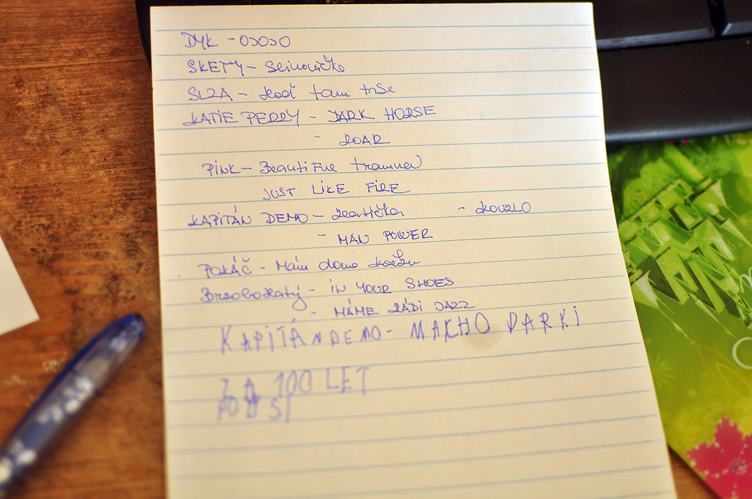 DYK - OJOJO
SKETY - Slinovičko
SLZA - Loď tam trše
KATIE PERRY - DARK HORSE
- ROAR
PiNK - Beautiful trauma
JUST LIKE FIRE
KAPITÁN DEMO - - KOUZLO
- MAN POWER
POKÁČ - Mám doma kočku
Brzobohatý - iN YOUR SHOES
- MÁME RÁDI JAZZ
KAPiTAN DEMO - MACHO PARKI
ZA 100 LET